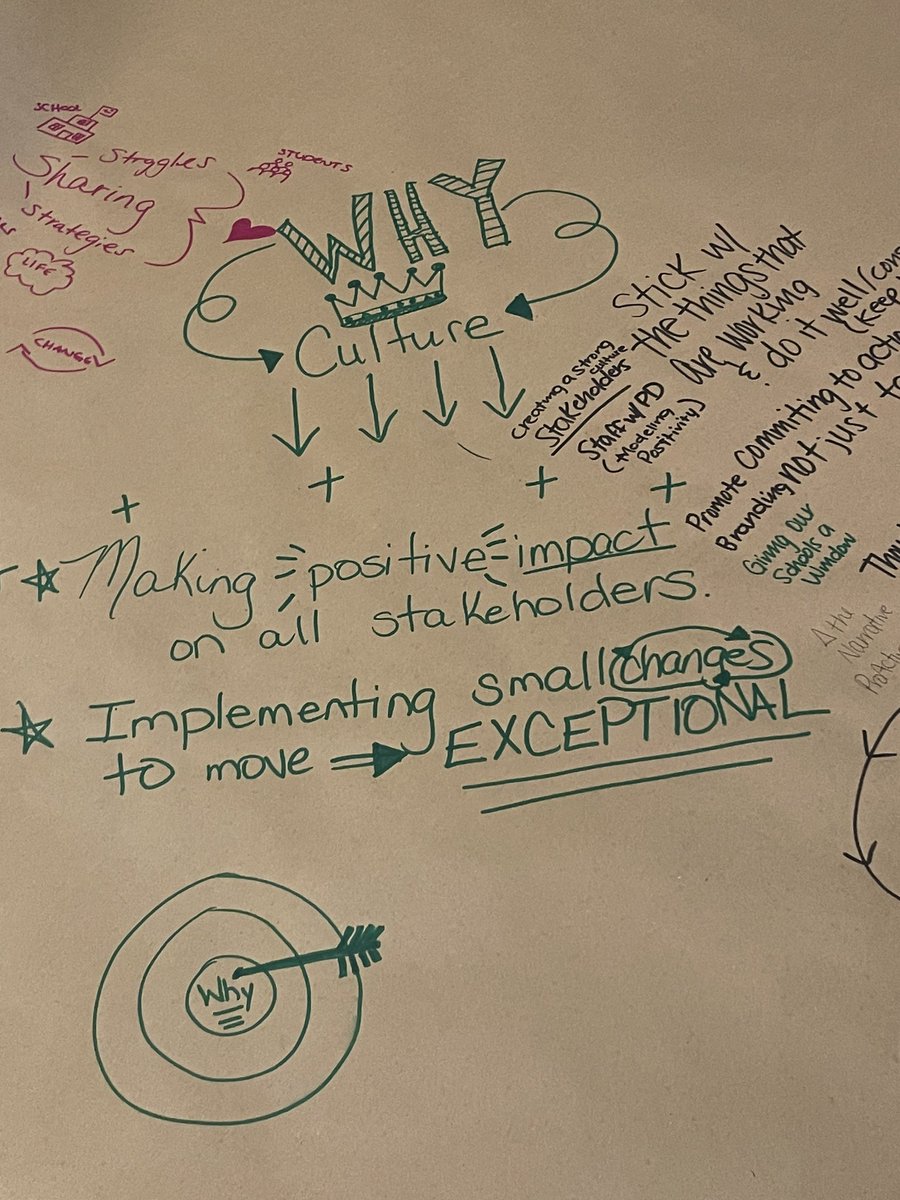 SCHOOL
Strggles
Sharing
Strategies
STUDENTS
LIFE
CHANGE
WHY
Culture
Making positive impact
on all stakeholders.
Implementing small changes
to move
EXCEPTIONAL
Why
Stick w/
the things that
are working
& do it well/
(keep
Creating a strong
culture
Stakeholders
Staff w/ PD
(Modeling
Positivity)
Promote Commiting to
Branding not just
Giving our
Schools a
Window
Narrative